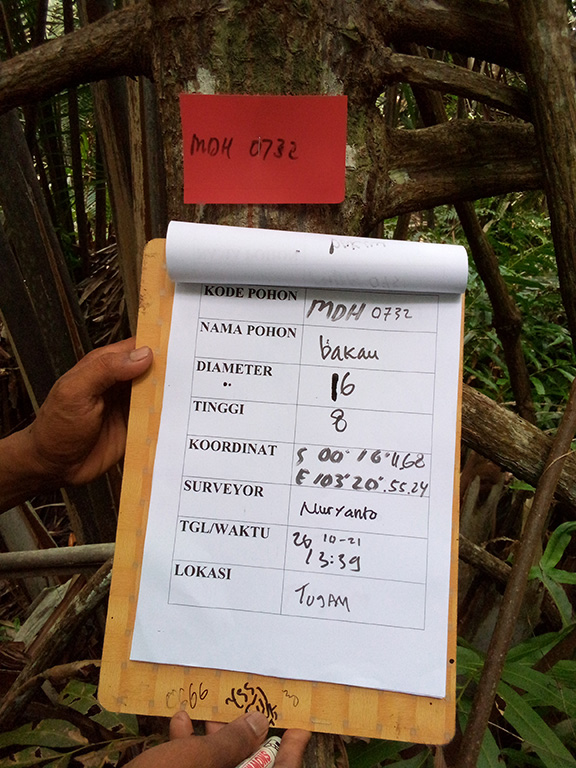 MDH 0732
KODE POHON MDH 0732
NAMA POHON bakau
DIAMETER 16
TINGGI 8
KOORDINAT S 00° 16' 11.68
E 103° 20'.55.24
SURVEYOR Nuryanto
TGL/WAKTU 26 10-21
13:39
LOKASI TUGAM